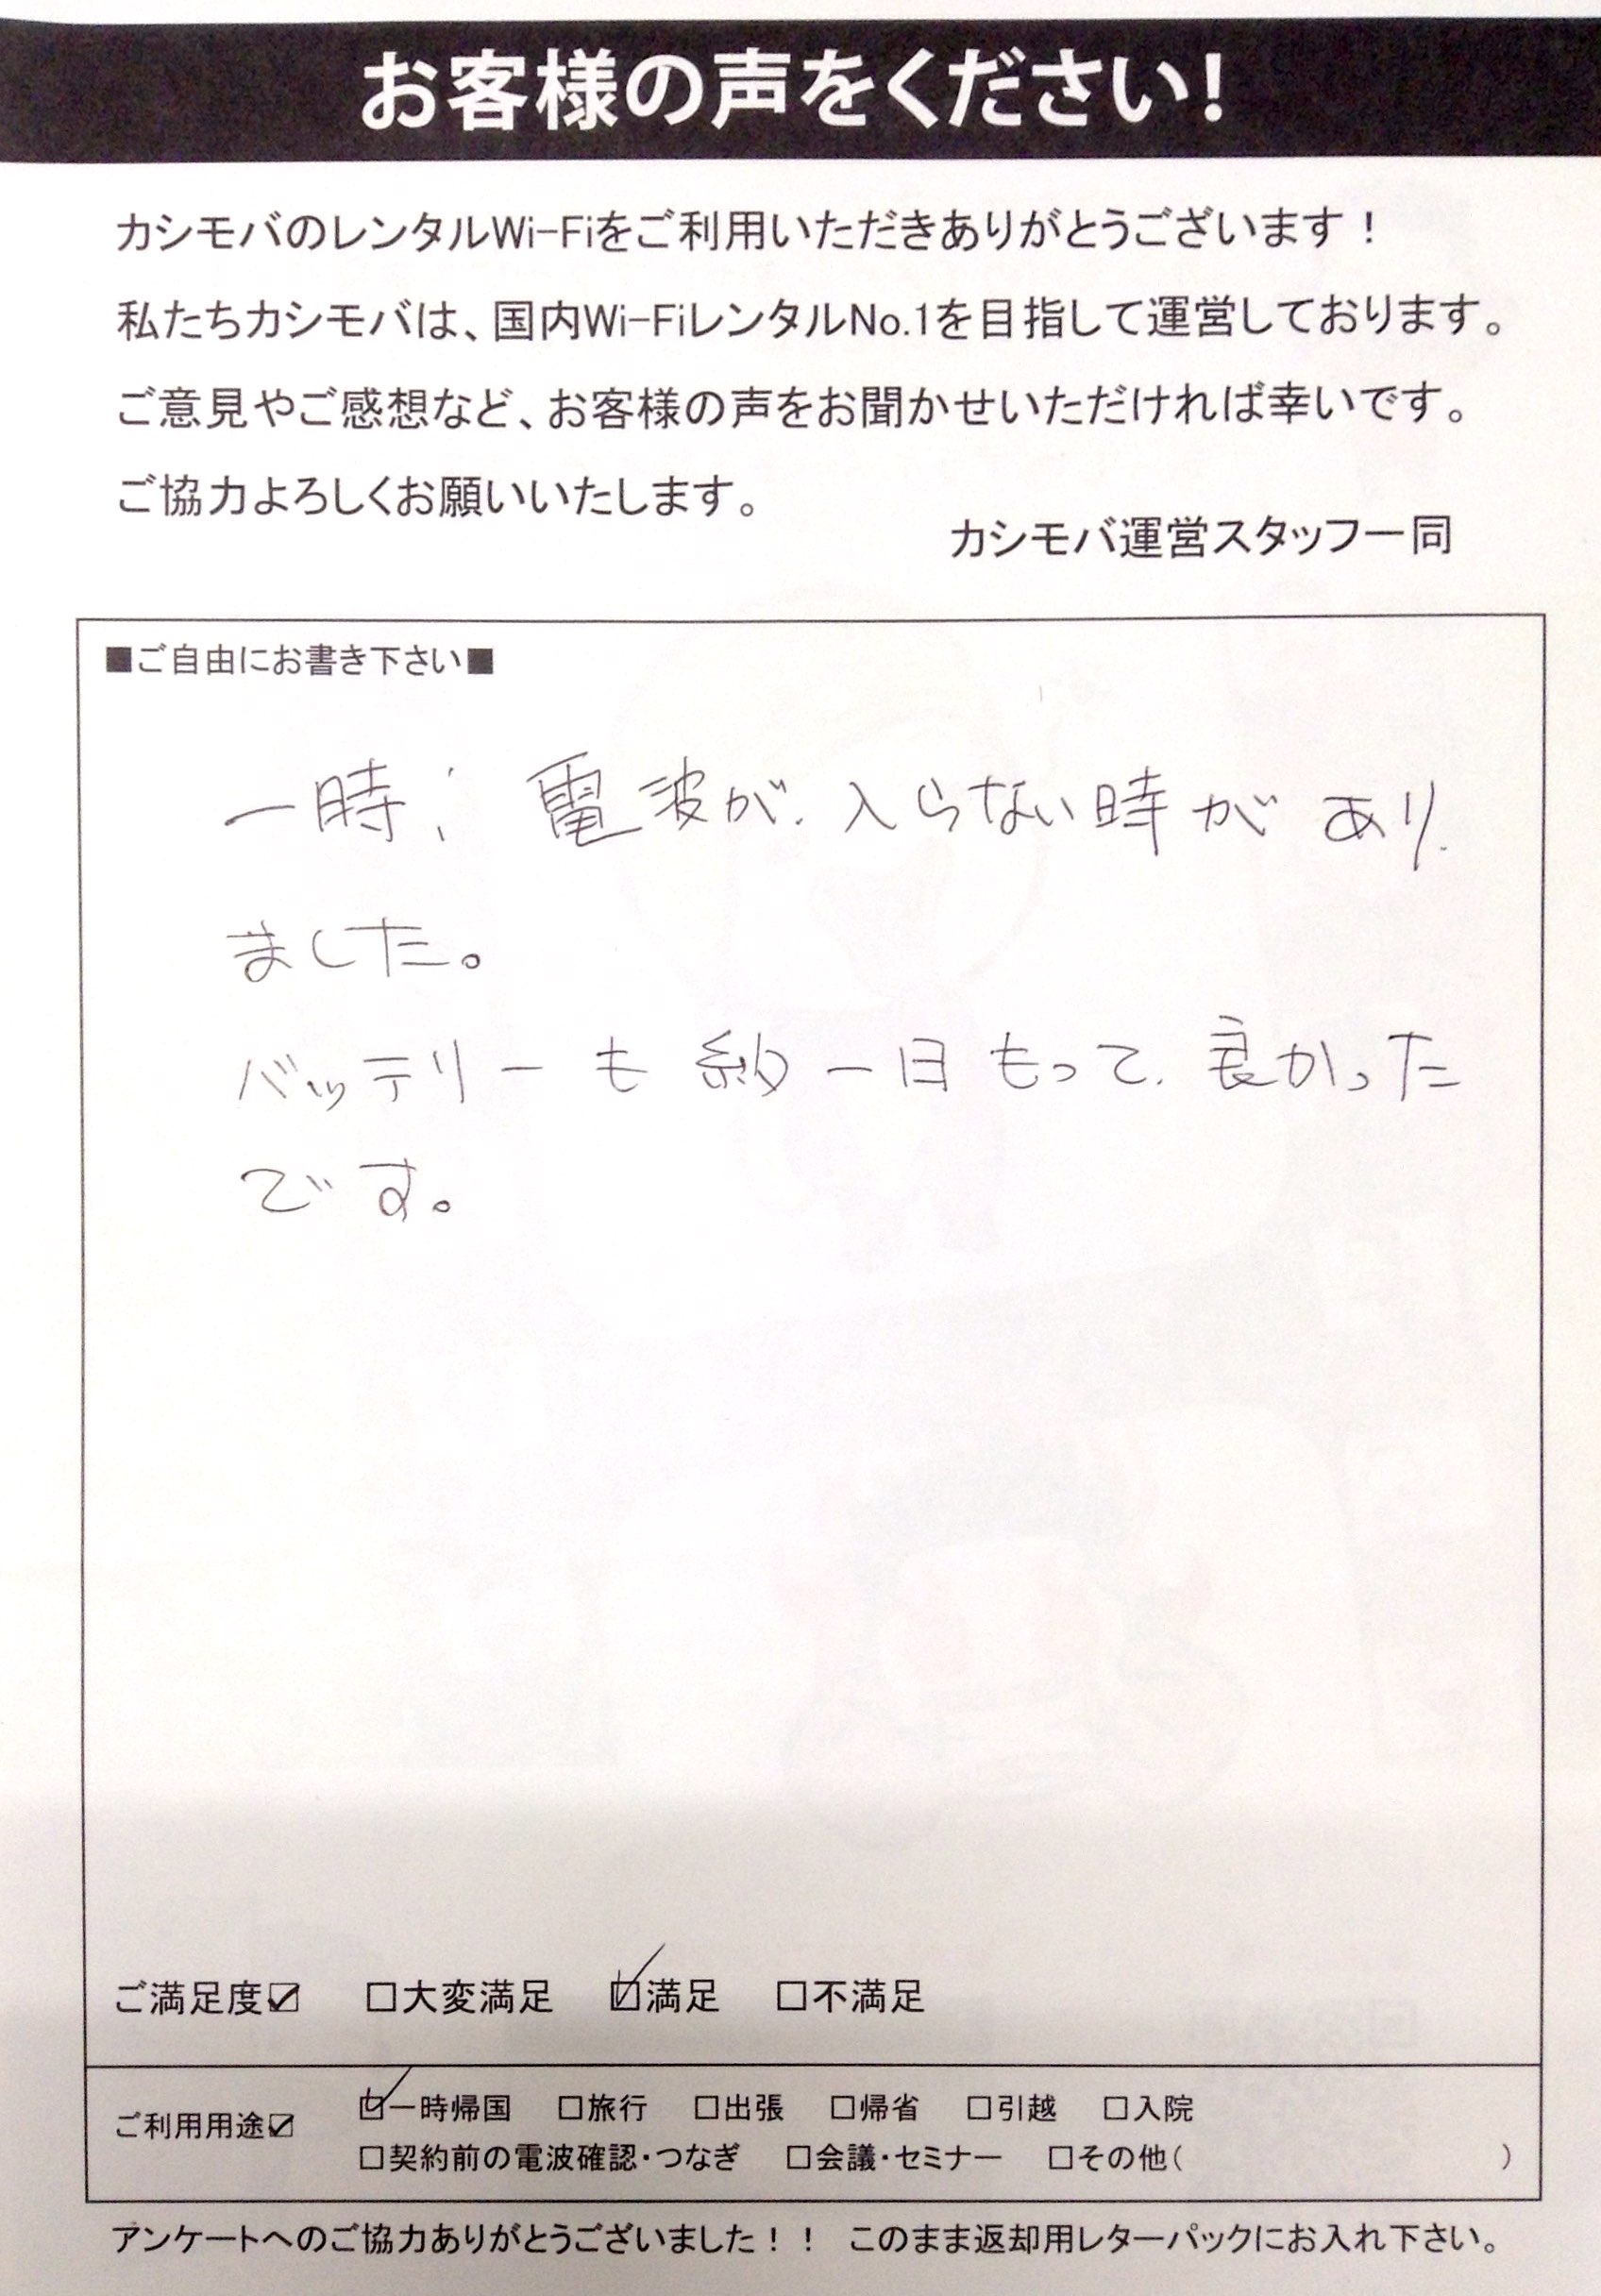 お客様の声をください!
カシモバのレンタルWi-Fiをご利用いただきありがとうございます！
私たちカシモバは、国内Wi-FiレンタルNo.1を目指して運営しております。
ご意見やご感想など、お客様の声をお聞かせいただければ幸いです。
ご協力よろしくお願いいたします。
カシモバ運営スタッフ一同
■ご自由にお書き下さい■
一時、電波が、入らない時があり
ました。
バッテリーも約一日もって、良かった
です。
ご満足度☑ □大変満足 ☑満足 □不満足
ご利用用途☑ ☑一時帰国 □旅行 □出張 □帰省 □引越 □入院
□契約前の電波確認・つなぎ □会議・セミナー □その他( )
アンケートへのご協力ありがとうございました！！ このまま返却用レターパックにお入れ下さい。